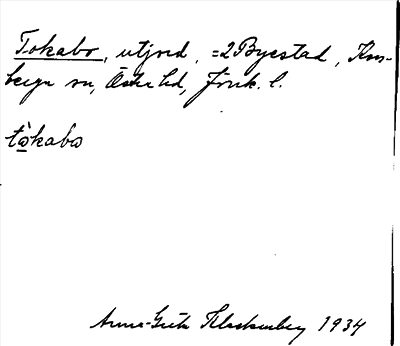 Tokabo, utjord, =2 Byestad, Kors-
berga sn, Östra hd, Jönk. l.
tòkabo
Anna-Greta Klackenberg 1934